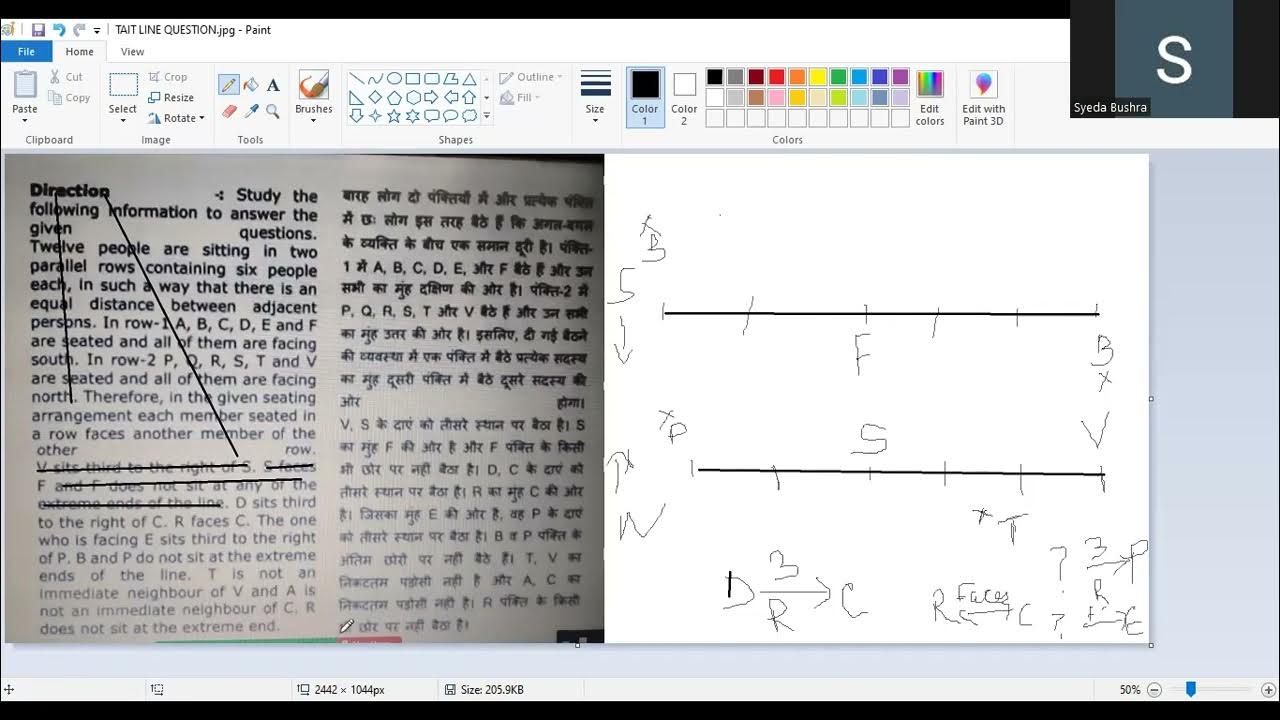 TAIT LINE QUESTION.jpg - Paint
File Home View
Cut
Copy
Paste
Clipboard
Select
Crop
Resize
Rotate
Image
A
Tools
Brushes
Outline
Fill
Shapes
Size
Color 1
Color 2
Edit colors
Edit with Paint 3D
Colors
S
Syeda Bushra
Direction -: Study the
following information to answer the
given questions.
Twelve people are sitting in two
parallel rows containing six people
each, in such a way that there is an
equal distance between adjacent
persons. In row-1 A, B, C, D, E and F
are seated and all of them are facing
south. In row-2 P, Q, R, S, T and V
are seated and all of them are facing
north. Therefore, in the given seating
arrangement each member seated in
a row faces another member of the
other row.
V sits third to the right of S. S faces
F and F does not sit at any of the
extreme ends of the line. D sits third
to the right of C. R faces C. The one
who is facing E sits third to the right
of P. B and P do not sit at the extreme
ends of the line. T is not an
immediate neighbour of V and A is
not an immediate neighbour of C, R
does not sit at the extreme end.
बारह लोग दो पंक्तियों में और प्रत्येक पंक्ति
में छः लोग इस तरह बैठे हैं कि अगल-बगल
के व्यक्ति के बीच एक समान दूरी है। पंक्ति-
1 में A, B, C, D, E, और F बैठे हैं और उन
सभी का मुंह दक्षिण की ओर है। पंक्ति-2 में
P, Q, R, S, T और V बैठे हैं और उन सभी
का मुंह उत्तर की ओर है। इसलिए, दी गई बैठने
की व्यवस्था में एक पंक्ति में बैठे प्रत्येक सदस्य
का मुंह दूसरी पंक्ति में बैठे दूसरे सदस्य की
ओर होगा।
V, S के दाएं को तीसरे स्थान पर बैठा है। S
का मुंह F की ओर है और F पंक्ति के किसी
भी छोर पर नहीं बैठा है। D, C के दाएं को
तीसरे स्थान पर बैठा है। R का मुंह C की ओर
है। जिसका मुंह E की ओर है, वह P के दाएं
को तीसरे स्थान पर बैठा है। B व P पंक्ति के
अंतिम छोरों पर नहीं बैठे है। T, V का
निकटतम पड़ोसी नहीं है और A, C का
निकटतम पड़ोसी नहीं है। R पंक्ति के किसी
छोर पर नहीं बैठा है।
B
S
F B
x
P S V
N
T
D 3 R C
R Faces C
? 3 P
R
? F E
2442 × 1044px
Size: 205.9KB
50%